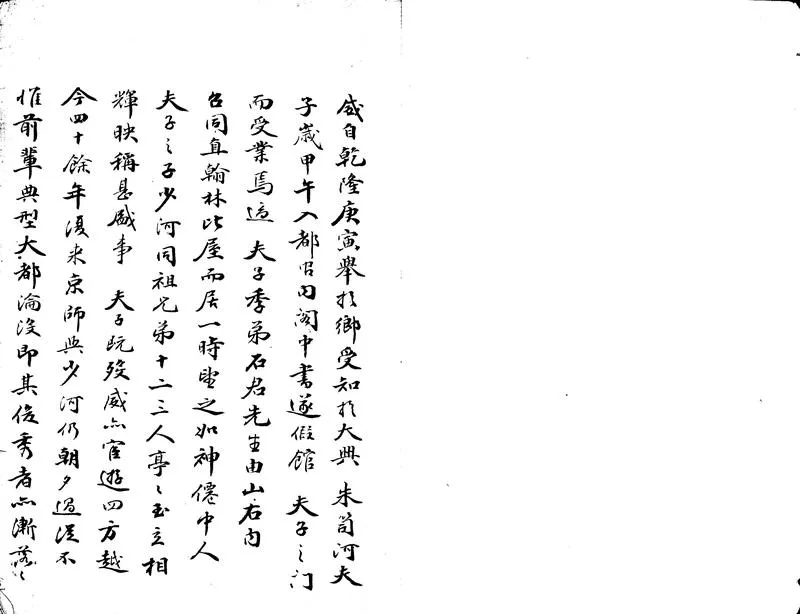 威自乾隆庚寅舉於鄉受知於大興 朱笥河夫
子歲甲午入都官内閣中書遂假館 夫子之门
而受業焉 夫子季弟石君先生由山右内
召同直翰林比屋而居一時望之如神僊中人
夫子之子少河同祖兄弟十二三人亭〻玉立相
輝映稱甚盛事 夫子既歿威亦宦遊四方越
今四十餘年復来京師與少河仍朝夕過從不
惟前輩典型大都淪沒即其俊秀者亦漸落〻